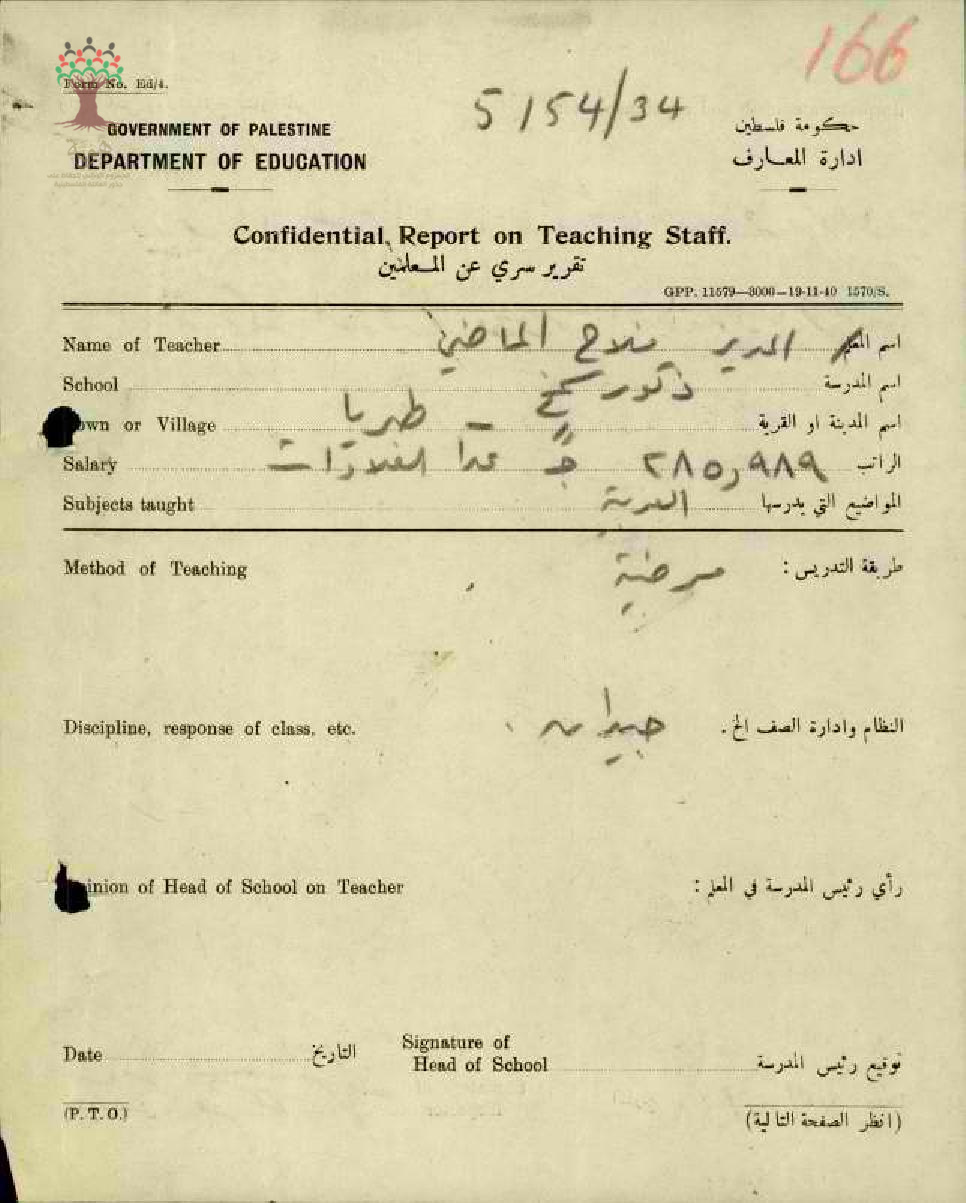 166
Form No. Ed/4.
5154/34
GOVERNMENT OF PALESTINE
حكومة فلسطين
DEPARTMENT OF EDUCATION
ادارة المعارف
Confidential Report on Teaching Staff.
تقرير سري عن المعلمين
GPP. 11579—3000—19-11-40 1570/S.
Name of Teacher المدير فلاح الماضي اسم المعلم
School ذكور سمخ اسم المدرسة
Town or Village طبريا اسم المدينة او القرية
Salary ٢٨٥,٩٨٩ ج عدا العلاوات الراتب
Subjects taught العربية المواضيع التي يدرسها
Method of Teaching مرضية طريقة التدريس :
Discipline, response of class, etc. جيدان . النظام وادارة الصف الخ .
Opinion of Head of School on Teacher رأي رئيس المدرسة في المعلم :
Date التاريخ Signature of
Head of School توقيع رئيس المدرسة
(P. T. O.) (انظر الصفحة التالية)